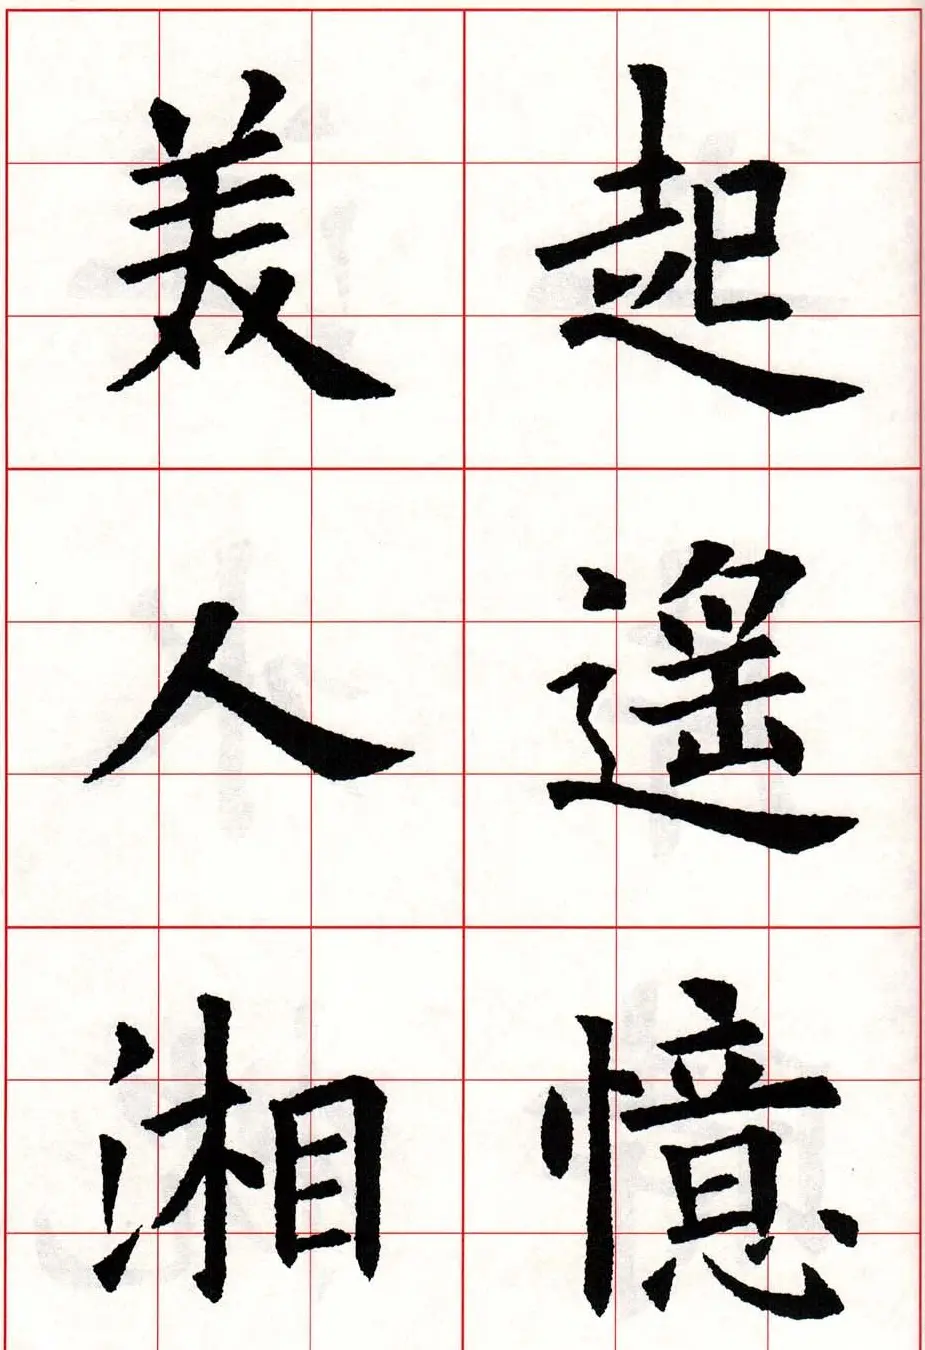 起遥憶
美人湘